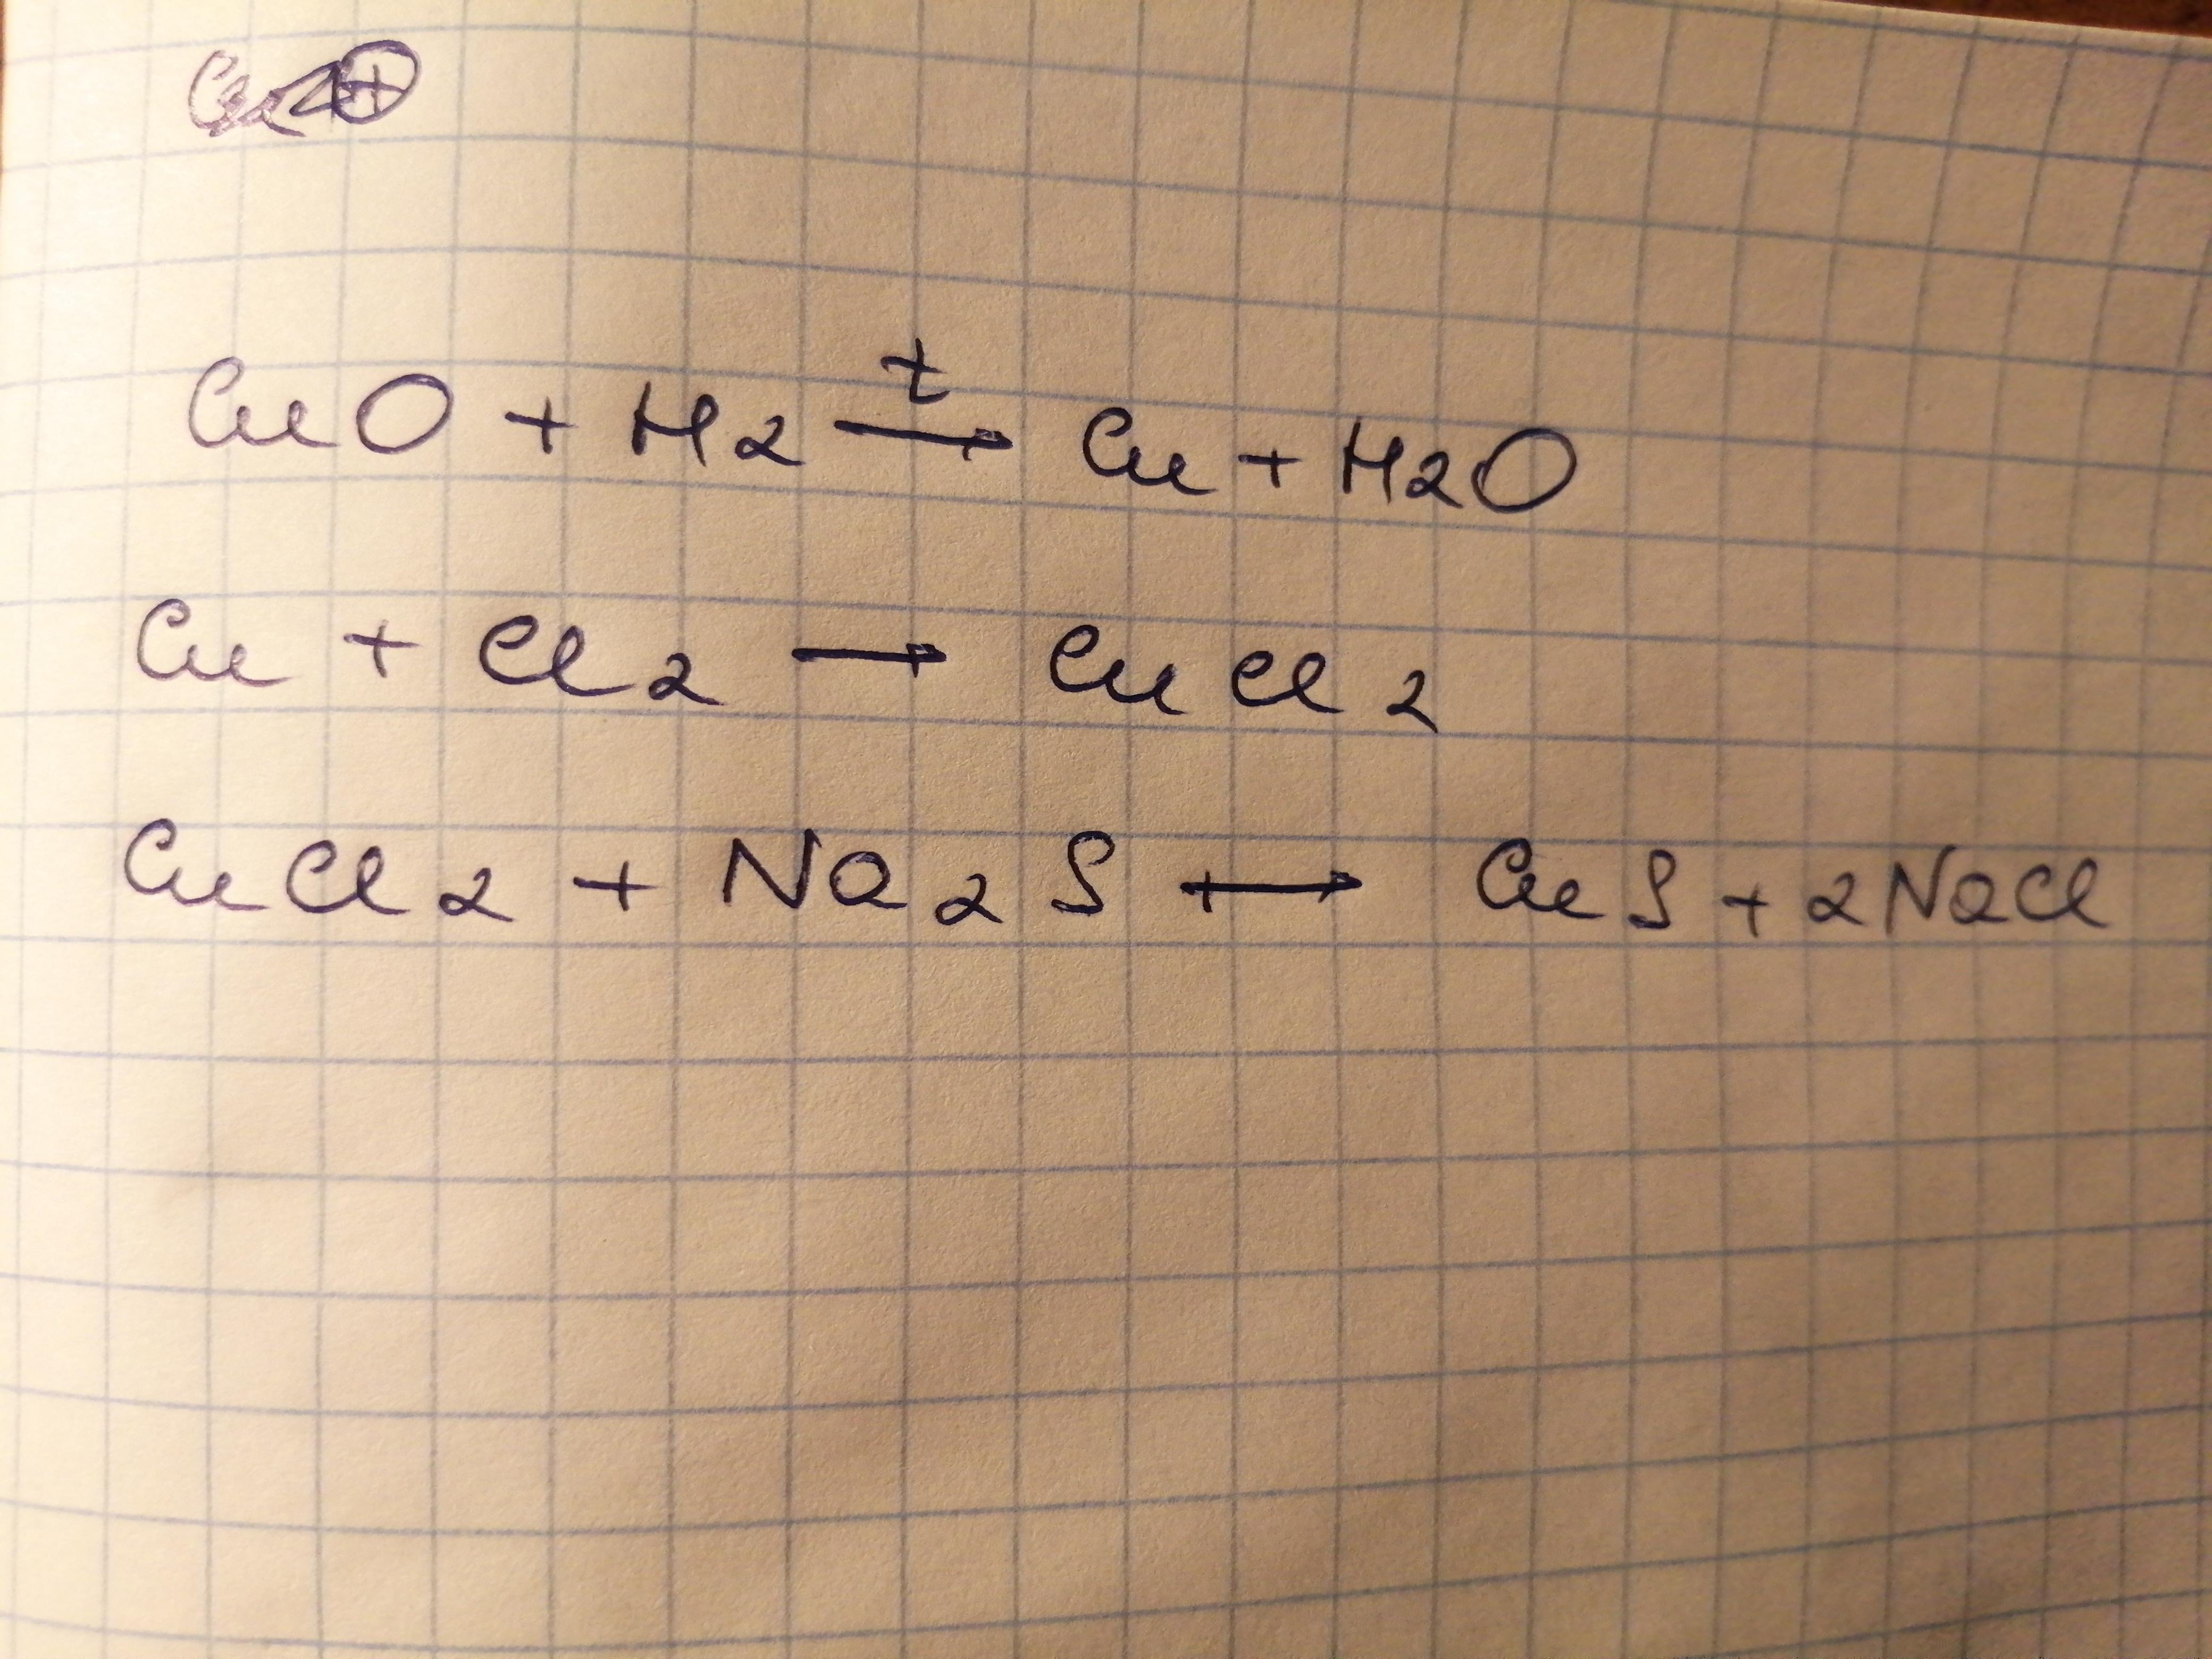 t
CuO + H2 → Cu + H2O
Cu + Cl2 → CuCl2
CuCl2 + Na2S → CuS + 2NaCl